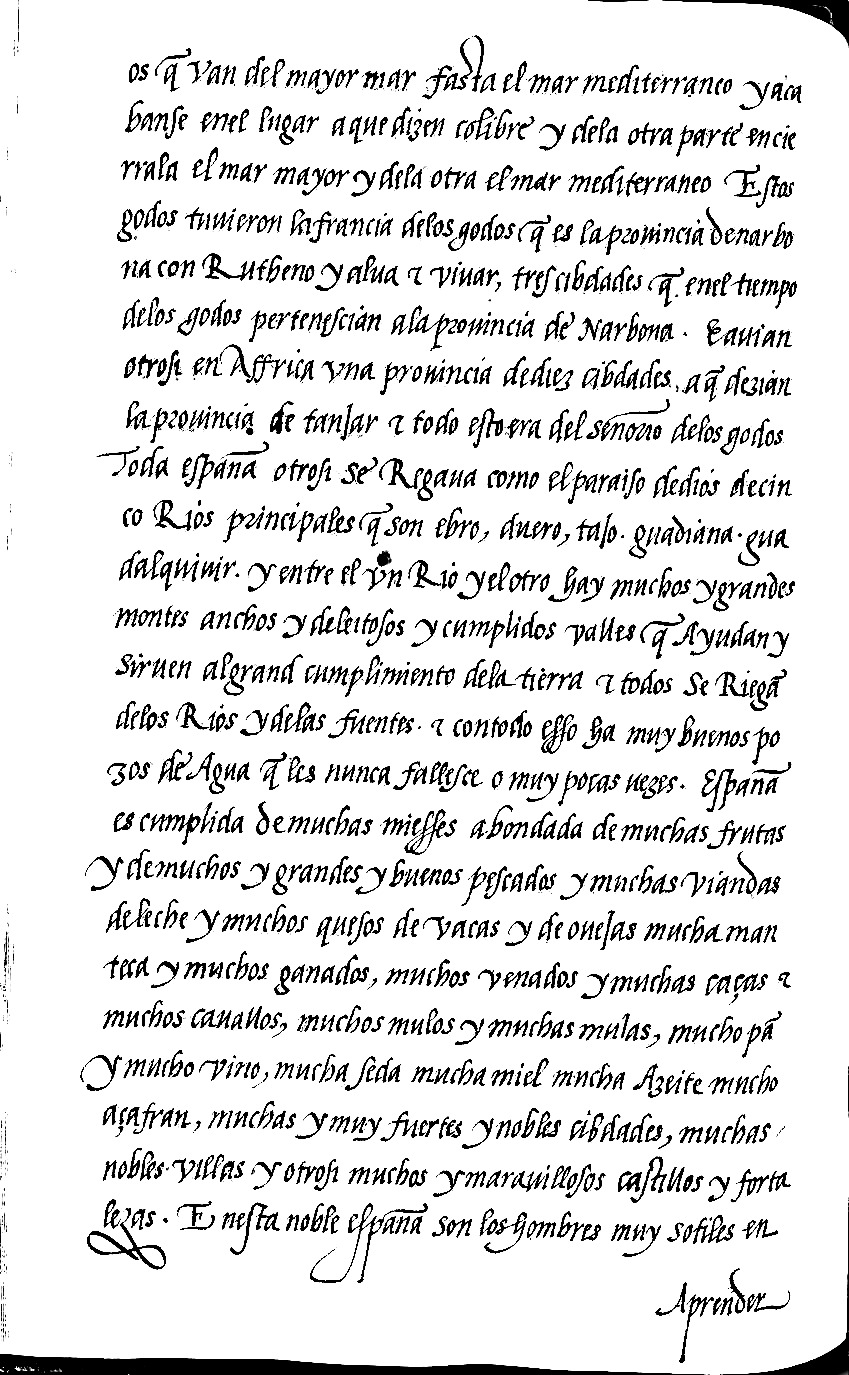 os q̃ van del mayor mar fasta el mar mediterraneo y aca
banse enel lugar a que dizen colibre y dela otra parte encie
rrala el mar mayor y dela otra el mar mediterraneo Estos
godos tuvieron la francia delos godos q̃ es la provincia de narbo
na con Rutheno y alva & vivar, tres cibdades q̃ enel tiempo
delos godos pertenescian ala provincia de Narbona. E avian
otrosi en Affrica vna provincia de diez cibdades, a q̃ dezian
la provincia de tanjar & todo esto era del señorio delos godos
Toda españa otrosi se Regava como el paraiso de dios de cin
co Rios principales q̃ son ebro, duero, tajo. guadiana. gua
dalquivir. y entre el vn Rio y el otro hay muchos y grandes
montes anchos y deleitosos y cumplidos valles q̃ Ayudan y
sirven al grand cumplimiento dela tierra & todos se Riegã
delos Rios y delas fuentes. & con todo esso ha muy buenos po
zos de Agua q̃ les nunca fallesce o muy pocas vezes. España
es cumplida de muchas miesses abondada de muchas frutas
y de muchos y grandes y buenos pescados y muchas viandas
de leche y muchos quesos de vacas y de ovejas mucha man
teca y muchos ganados, muchos venados y muchas caças &
muchos cavallos, muchos mulos y muchas mulas, mucho pã
y mucho vino, mucha seda mucha miel mucha Azeite mucho
açafran, muchas y muy fuertes y nobles cibdades, muchas
nobles villas y otrosi muchos y maravillosos castillos y forta
lezas. Enesta noble españa son los hombres muy sotiles en
Aprender